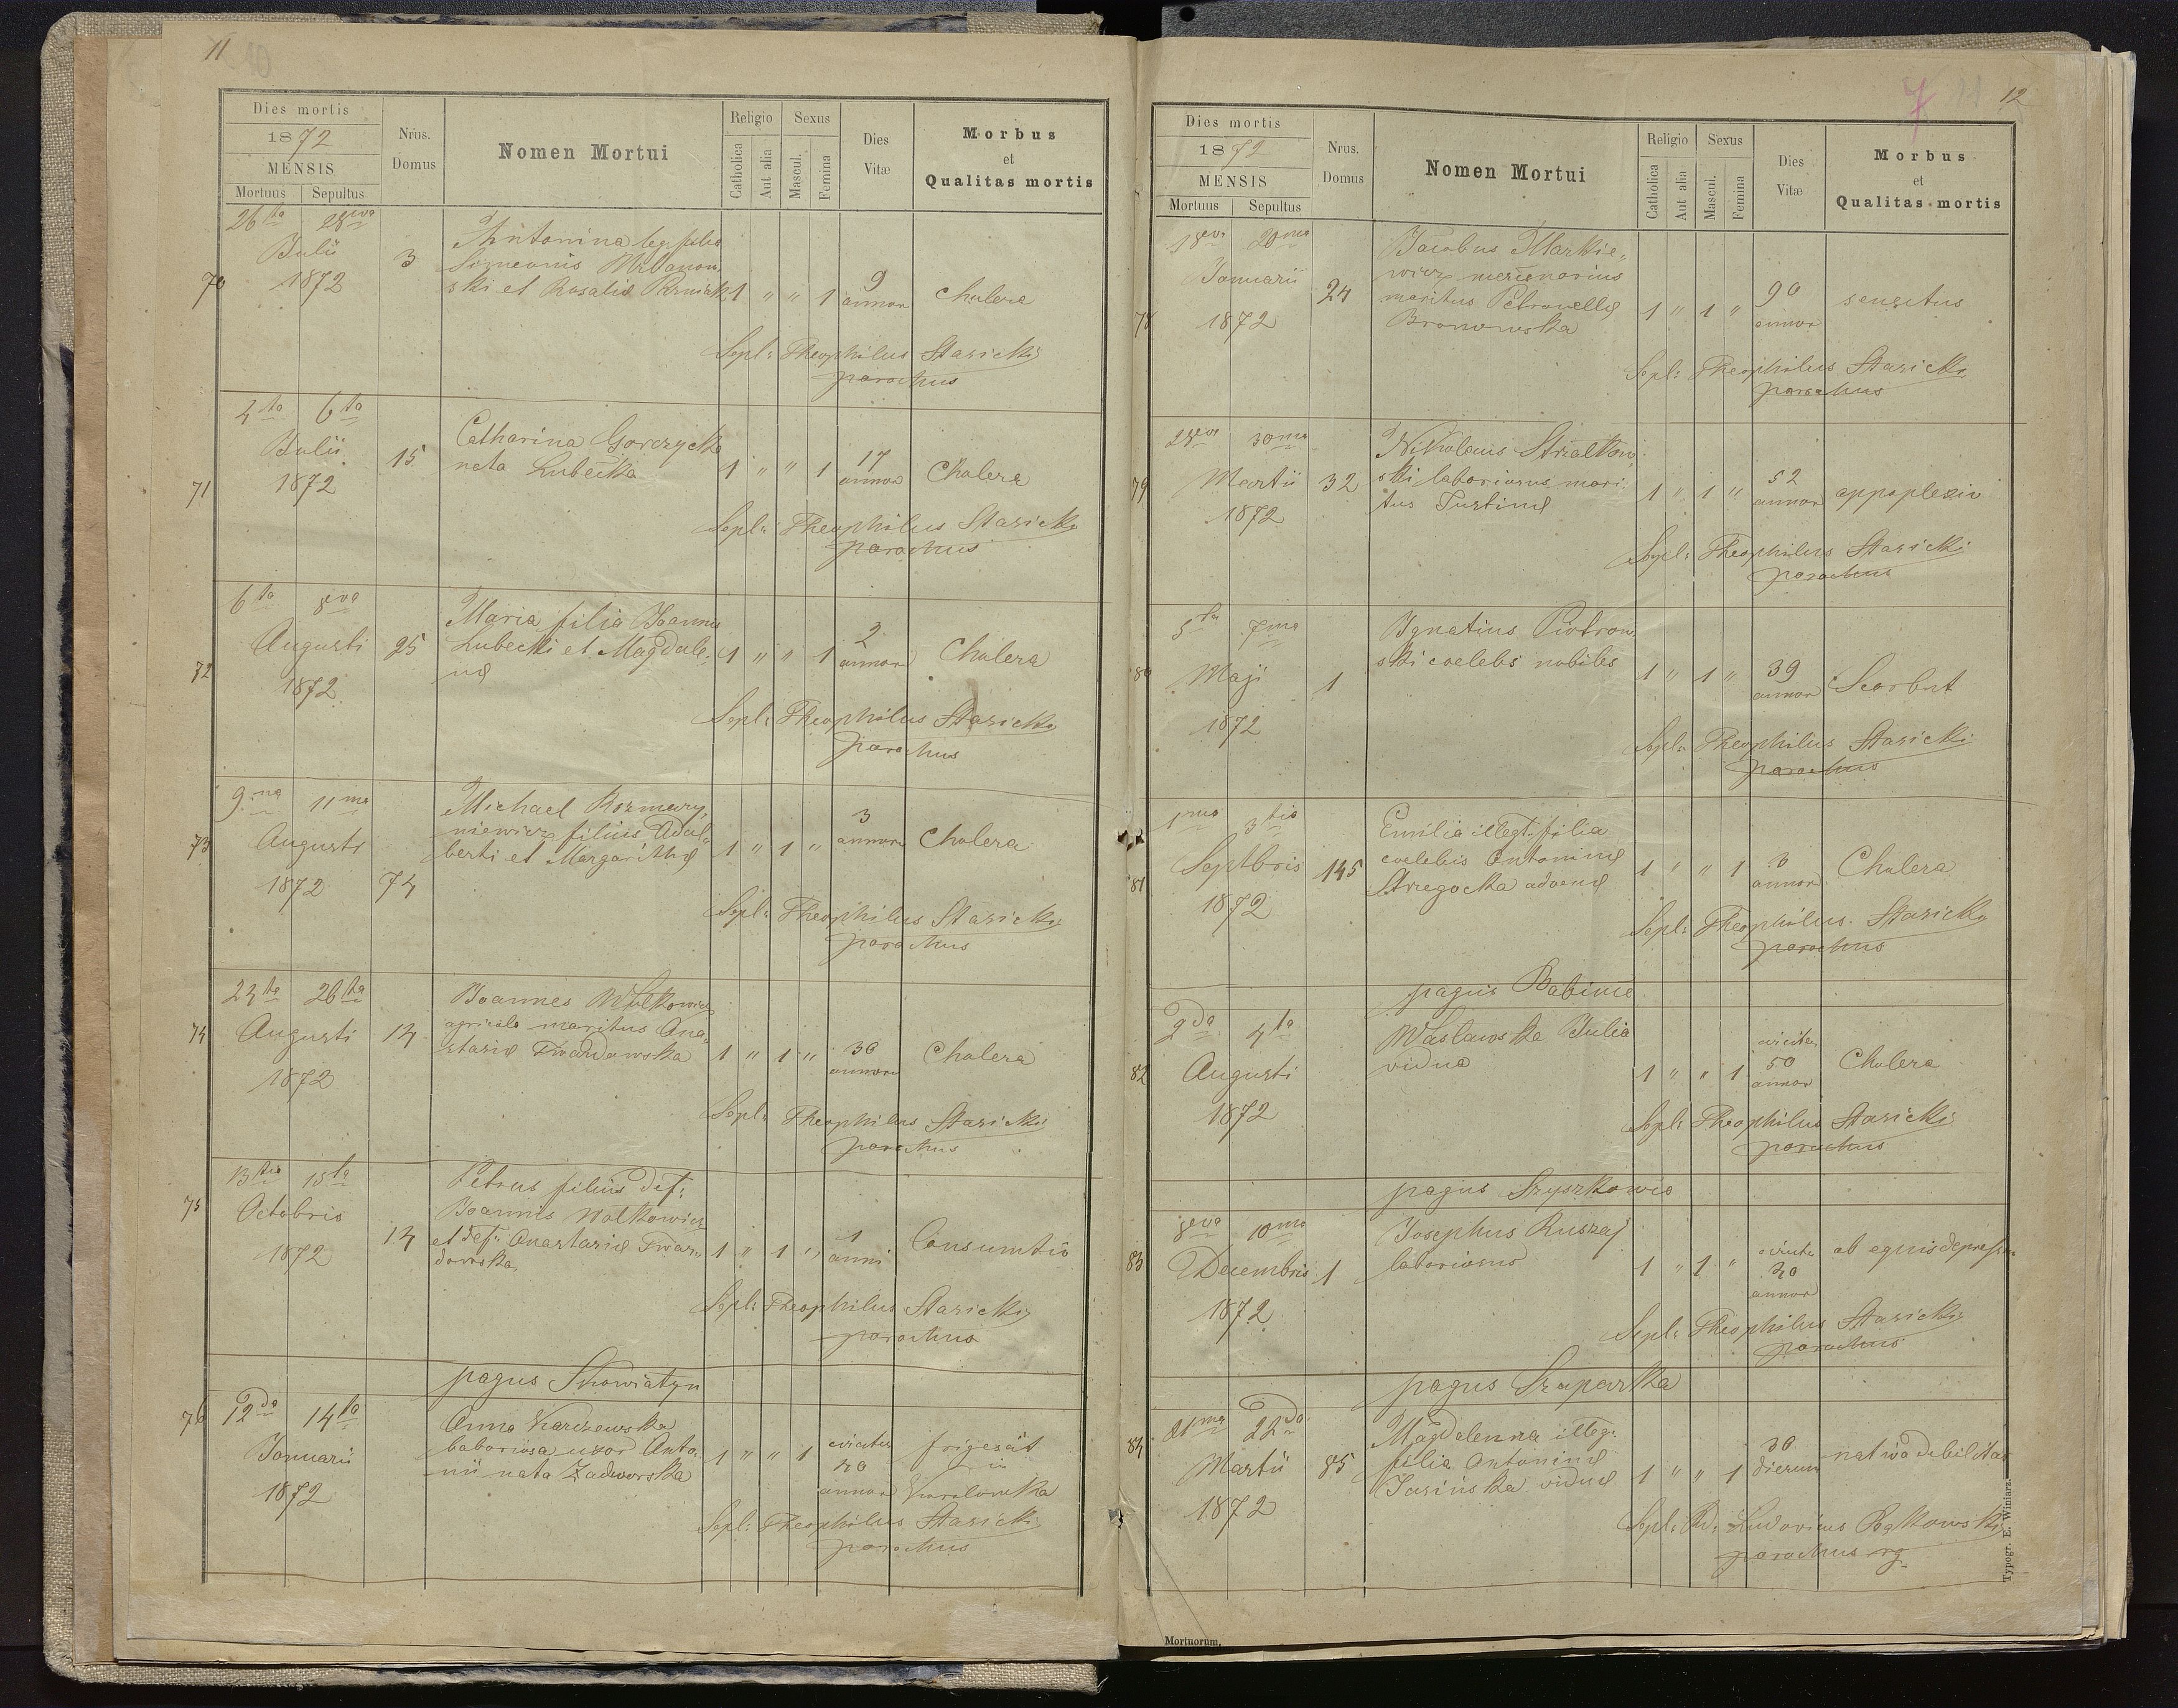 11
Dies mortis
1872
MENSIS
Mortuus Sepultus
Nrus. Domus
Nomen Mortui
Religio
Catholica Aut alia
Sexus
Mascul. Femina
Dies Vitæ
Morbus
et
Qualitas mortis
70 26ta 28va
Julii
1872
3
Antonina leg. filia
Simeonis Urbanow,
ski et Rosaliæ
1 " " 1
9 annor
Cholera
Sepl: Theophilus Stasicki
parochus
71 4ta 6ta
Julii
1872
15
Catharina Gorczycka
nata Lubecka
1 " " 1
17 annor
Cholera
Sepl: Theophilus Stasicki
parochus
72 6ta 8va
Augusti
1872
25
Maria filia Joannis
Lubecki et Magdale,
næ
1 " " 1
2 annor
Cholera
Sepl: Theophilus Stasicki
parochus
73 9na 11ma
Augusti
1872
74
Michael Rozmary,
niewicz filius Adal,
berti et Margarithæ
1 " 1 "
3 annor
Cholera
Sepl: Theophilus Stasicki
parochus
74 24ta 26ta
Augusti
1872
14
Joannes Wolkowicz
agricola maritus Ana,
stasiæ Twardowska
1 " 1 "
30 annor
Cholera
Sepl: Theophilus Stasicki
parochus
75 13tia 15ta
Octobris
1872
14
Petrus filius def:
Joannis Wolkowicz
et def: Anastasiæ Twar,
dowska
1 " 1 "
1 anni
Consumtio
Sepl: Theophilus Stasicki
parochus
pagus Skowiatyn
76 12da 14ta
Januarii
1872
Anna Karczewska
laboriosa uxor Anto,
nii nata Zadworska
1 " " 1
circiter
40
annor
frigesat
in
Korolowka
Sepl: Theophilus Stasicki
parochus
12
7
Dies mortis
1872
MENSIS
Mortuus Sepultus
Nrus. Domus
Nomen Mortui
Religio
Catholica Aut alia
Sexus
Mascul. Femina
Dies Vitæ
Morbus
et
Qualitas mortis
78 18va 20ma
Januarii
1872
24
Jacobus Markie,
wicz mercenarius
maritus Petronellæ
Bronowska
1 " 1 "
90 annor
senectus
Sepl: Theophilus Stasicki
parochus
79 28va 30ma
Martii
1872
32
Nikolaus Strzalkow,
ski laboriosus mari,
tus Justinæ
1 " 1 "
52 annor
appoplexia
Sepl: Theophilus Stasicki
parochus
80 5ta 7ma
Maji
1872
1
Ignatius Piotrow,
ski coelebs nobiles
1 " 1 "
39 annor
Scorbut
Sepl: Theophilus Stasicki
parochus
81 1ma 3tia
Septbris
1872
145
Emilia illegt. filia
coelebis Antoninæ
Strzegocka advenæ
1 " " 1
3 annor
Cholera
Sepl: Theophilus Stasicki
parochus
pagus Babince
82 2da 4ta
Augusti
1872
Waslawska Julia
vidua
1 " " 1
circiter
50
annor
Cholera
Sepl: Theophilus Stasicki
parochus
pagus Szyszkowce
83 8va 10ma
Decembris
1872
1
Josephus Ruszaj
laboriosus
1 " 1 "
circiter
40
annor
ab equis depressus
Sepl: Theophilus Stasicki
parochus
pagus Szuparka
84 21ma 22da
Martii
1872
85
Magdalenna illeg:
filia Antoninæ
Jasińska viduæ
1 " " 1
30 dierum
nativa debilitas
Sepl: Rd: Ludovicus Bąkowski
parochus rg
Typogr. E. Winiarz.
Mortuorum.